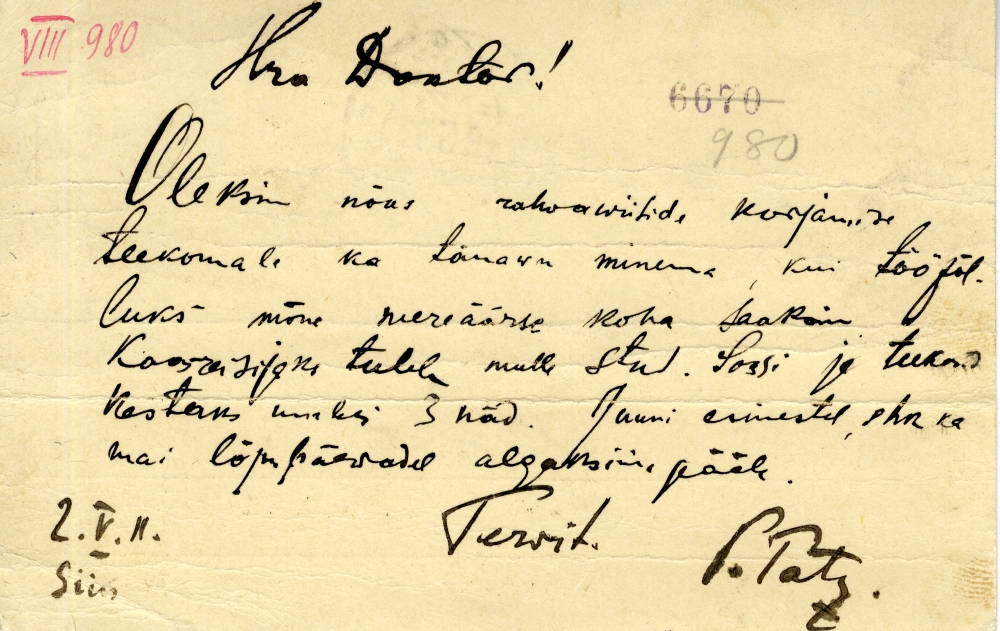 VIII 980
Hra Doctor!
6670
980
Oleksin nõus rahvawiiside korjamise
teekonnale ka tänawu minema, kui tööpõl-
luks mõne mereäärse koha saaksin
Kaasreisijaks tuleb mulle stud. Sossi ja teekond
kestaks umbes 3 näd. Juuni esimestel, ehk ka
mai lõpupäewadel algaksime pääle.
2.V.11.
Terwit.
P. Tatz.
Siin